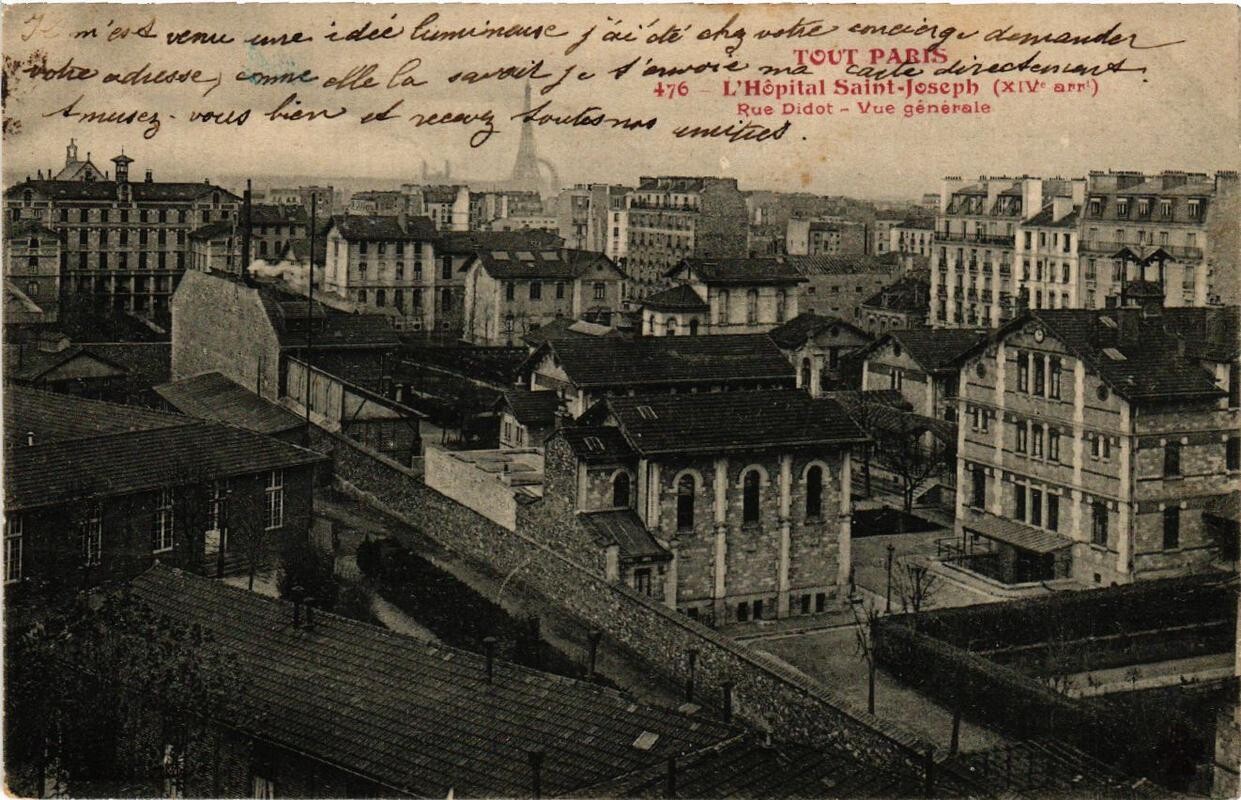 Il m'est venu une idée lumineuse j'ai été chez votre concierge demander
votre adresse, comme elle la savait je t'envoie ma carte directement.
Amusez-vous bien et recevez toutes nos amitiés.
TOUT PARIS
476 - L'Hôpital Saint-Joseph (XIVe arrt)
Rue Didot - Vue générale